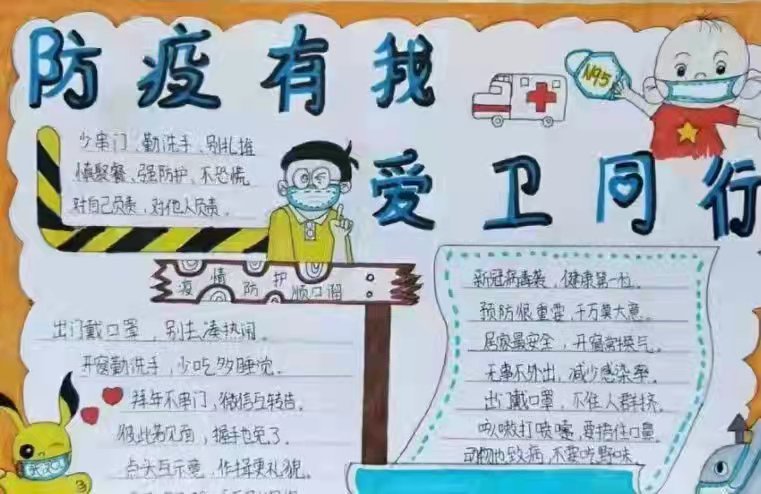 防疫有我
爱卫同行
N95
少串门、勤洗手、别扎堆
慎聚餐、强防护、不恐慌
对自己负责，对他人负责。
疫情防护顺口溜
出门戴口罩，别去凑热闹。
开窗勤洗手，少吃多睡觉。
拜年不串门，微信互转告。
彼此若见面，握手也免了。
点头互示意，作揖更礼貌。
新冠病毒袭，健康第一位。
预防很重要，千万莫大意。
居家最安全，开窗勤换气。
无事不外出，减少感染率。
出门戴口罩，不往人群挤。
咳嗽打喷嚏，要捂住口鼻。
动物也致病，不要吃野味